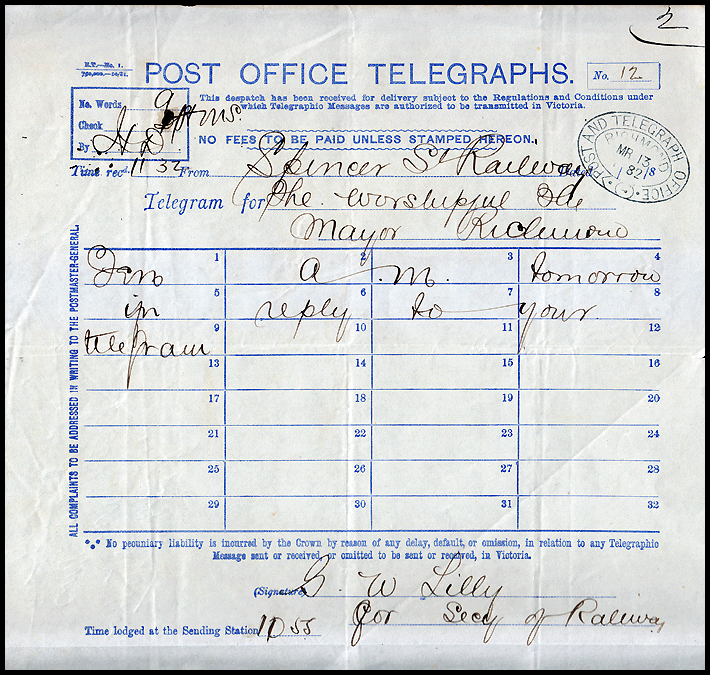 2
B.T.—No. 1.
POST OFFICE TELEGRAPHS.
No. 12
This despatch has been received for delivery subject to the Regulations and Conditions under
which Telegraphic Messages are authorized to be transmitted in Victoria.
No. Words 9
Check
By H D
NO FEES TO BE PAID UNLESS STAMPED HEREON.
POST AND TELEGRAPH OFFICE
RICHMOND
MR 13
82
Time recd. 11 32 From Spencer St Railway
Telegram for The Worshipful The
Mayor Richmond
1 2 3 4
Ten a m. tomorrow
5 6 7 8
in reply to your
9 10 11 12
telegram
13 14 15 16
17 18 19 20
21 22 23 24
25 26 27 28
29 30 31 32
ALL COMPLAINTS TO BE ADDRESSED IN WRITING TO THE POSTMASTER-GENERAL.
No pecuniary liability is incurred by the Crown by reason of any delay, default, or omission, in relation to any Telegraphic
Message sent or received, or omitted to be sent or received, in Victoria.
(Signature) G. W Lilly
for Secy of Railway
Time lodged at the Sending Station 11 55